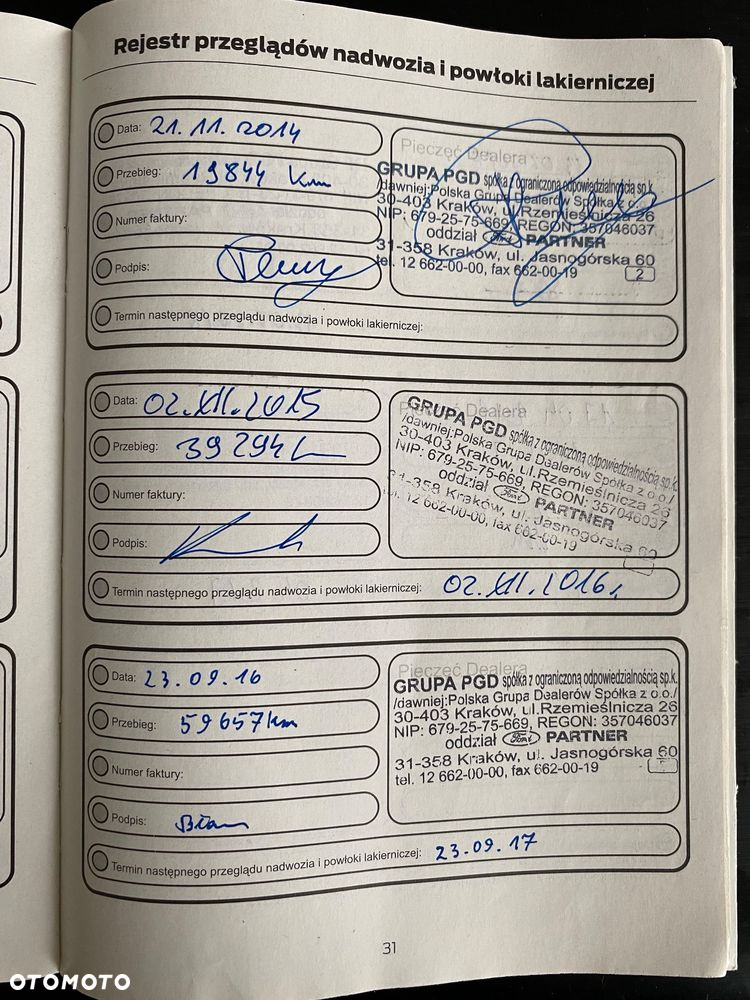 Rejestr przeglądów nadwozia i powłoki lakierniczej
Data: 21.11.2014
Przebieg: 19844 km
Numer faktury:
Podpis:
Pieczęć Dealera
GRUPA PGD spółka z ograniczoną odpowiedzialnością sp.k.
/dawniej:Polska Grupa Dealerów Spółka z o.o./
30-403 Kraków, ul.Rzemieślnicza 26
NIP: 679-25-75-669, REGON: 357046037
oddział Ford PARTNER
31-358 Kraków, ul. Jasnogórska 60
tel. 12 662-00-00, fax 662-00-19
2
Termin następnego przeglądu nadwozia i powłoki lakierniczej:
Data: 02.XII.2015
Przebieg: 39294
Numer faktury:
Podpis:
Pieczęć Dealera
GRUPA PGD spółka z ograniczoną odpowiedzialnością sp.k.
/dawniej:Polska Grupa Dealerów Spółka z o.o./
30-403 Kraków, ul.Rzemieślnicza 26
NIP: 679-25-75-669, REGON: 357046037
oddział Ford PARTNER
31-358 Kraków, ul. Jasnogórska 60
tel. 12 662-00-00, fax 662-00-19
Termin następnego przeglądu nadwozia i powłoki lakierniczej: 02.XII.2016r.
Data: 23.09.16
Przebieg: 59657km
Numer faktury:
Podpis:
Pieczęć Dealera
GRUPA PGD spółka z ograniczoną odpowiedzialnością sp.k.
/dawniej:Polska Grupa Dealerów Spółka z o.o./
30-403 Kraków, ul.Rzemieślnicza 26
NIP: 679-25-75-669, REGON: 357046037
oddział Ford PARTNER
31-358 Kraków, ul. Jasnogórska 60
tel. 12 662-00-00, fax 662-00-19
Termin następnego przeglądu nadwozia i powłoki lakierniczej: 23.09.17
31
OTOMOTO